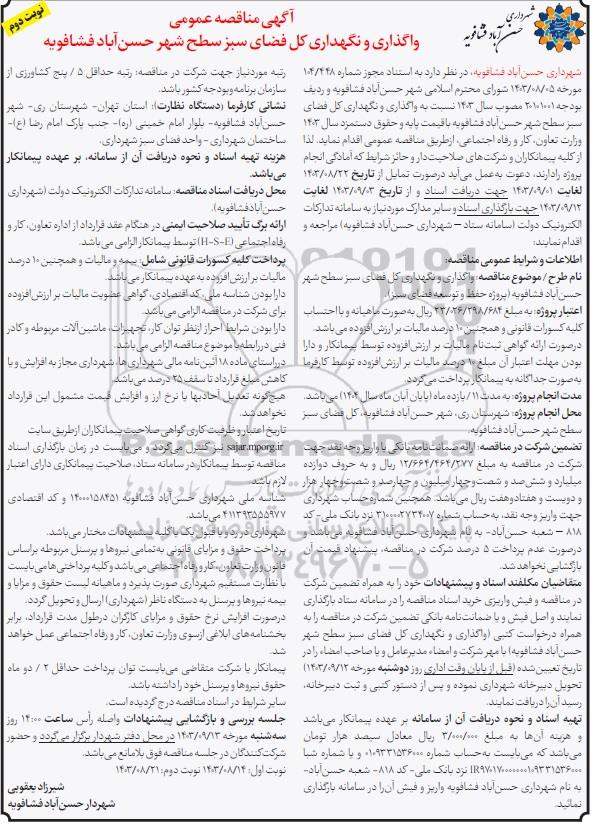 نوبت دوم
شهرداری
حسن آباد فشافویه
آگهی مناقصه عمومی
واگذاری و نگهداری کل فضای سبز سطح شهر حسن‌آباد فشافویه
شهرداری حسن‌آباد فشافویه، در نظر دارد به استناد مجوز شماره ۱۰۴/۴۴۸
مورخه ۱۴۰۳/۰۸/۰۵ شورای محترم اسلامی شهر حسن‌آباد فشافویه و ردیف
بودجه ۲۰۱۰۱۰۰۱ مصوب سال ۱۴۰۳ نسبت به واگذاری و نگهداری کل فضای
سبز سطح شهر حسن‌آباد فشافویه باقیمت پایه و حقوق دستمزد سال ۱۴۰۳
وزارت تعاون، کار و رفاه اجتماعی، ازطریق مناقصه عمومی اقدام نماید. لذا
از کلیه پیمانکاران و شرکت‌های صلاحیت‌دار و حائز شرایط که آمادگی انجام
پروژه رادارند، دعوت به‌عمل می‌آید درصورت تمایل از تاریخ ۱۴۰۳/۰۸/۲۲
لغایت ۱۴۰۳/۰۹/۰۱ جهت دریافت اسناد و از تاریخ ۱۴۰۳/۰۹/۰۳ لغایت
۱۴۰۳/۰۹/۱۲ جهت بارگذاری اسناد و سایر مدارک موردنیاز به سامانه تدارکات
الکترونیک دولت (سامانه ستاد – شهرداری حسن‌آباد فشافویه) مراجعه و
اقدام نمایند:
اطلاعات و شرایط عمومی مناقصه:
نام طرح / موضوع مناقصه: واگذاری و نگهداری کل فضای سبز سطح شهر
حسن‌آباد فشافویه (پروژه حفظ و توسعه فضای سبز).
اعتبار پروژه: به مبلغ ۲۳/۰۳۶/۲۹۸/۶۸۴ ریال به‌صورت ماهیانه و بااحتساب
کلیه کسورات قانونی و همچنین ۱۰ درصد مالیات بر ارزش‌افزوده می‌باشد.
درصورت ارائه گواهی ثبت‌نام مالیات بر ارزش‌افزوده توسط پیمانکار و دارا
بودن مهلت اعتبار آن مبلغ ۱۰ درصد مالیات بر ارزش‌افزوده توسط کارفرما
به‌صورت جداگانه به پیمانکار پرداخت می‌گردد.
مدت انجام پروژه: به مدت ۱۱ / یازده ماه (پایان آبان ماه سال ۱۴۰۴) می‌باشد.
محل انجام پروژه: شهرستان ری، شهر حسن‌آباد فشافویه، کل فضای سبز
سطح شهر حسن‌آباد فشافویه.
تضمین شرکت در مناقصه: ارائه ضمانت‌نامه بانکی یا واریز وجه نقد جهت
شرکت در مناقصه به مبلغ ۱۲/۶۶۴/۴۶۴/۲۷۷ ریال و به حروف دوازده
میلیارد و شش‌صد و شصت‌وچهار میلیون و چهارصد و شصت‌وچهار هزار
و دویست و هفتادوهفت ریال می‌باشد. همچنین شماره حساب شهرداری
جهت واریز وجه نقد، به‌حساب شماره ۳۱۰۰۰۰۲۷۳۴۰۰۷ نزد بانک ملی-کد
۸۱۸ – شعبه حسن‌آباد- به نام شهرداری حسن‌آباد فشافویه می‌باشد و
درصورت عدم پرداخت ۵ درصد شرکت در مناقصه، پیشنهاد قیمت آن
بازگشایی نخواهد شد.
متقاضیان مکلفند اسناد و پیشنهادات خود را به همراه تضمین شرکت
در مناقصه و فیش واریزی خرید اسناد مناقصه را در سامانه ستاد بارگذاری
نمایند و اصل فیش و یا ضمانت‌نامه بانکی تضمین شرکت در مناقصه را به
همراه درخواست کتبی (واگذاری و نگهداری کل فضای سبز سطح شهر
حسن‌آباد فشافویه) با مهر شرکت و امضاء مدیرعامل و یا صاحب امضاء را در
تاریخ تعیین‌شده (قبل از پایان وقت اداری روز دوشنبه مورخه ۱۴۰۳/۰۹/۱۲)
تحویل دبیرخانه شهرداری نموده و پس از دستور کتبی و ثبت دبیرخانه،
رسید آن‌را دریافت نمایند.
تهیه اسناد و نحوه دریافت آن از سامانه بر عهده پیمانکار می‌باشد
و هزینه آن‌ها به مبلغ ۳/۰۰۰/۰۰۰ ریال معادل سیصد هزار تومان
می‌باشد که می‌بایست به‌حساب شماره ۰۱۰۹۳۳۱۵۳۶۰۰۰ و یا شماره شبا
نزد بانک ملی- کد ۸۱۸- شعبه حسن‌آباد-
به نام شهرداری حسن‌آباد فشافویه واریز و فیش آن‌را در سامانه بارگذاری
نمائید.
رتبه موردنیاز جهت شرکت در مناقصه: رتبه حداقل ۵ / پنج کشاورزی از
سازمان برنامه‌وبودجه کشور باشد.
نشانی کارفرما (دستگاه نظارت): استان تهران- شهرستان ری- شهر
حسن‌آباد فشافویه- بلوار امام خمینی (ره)- جنب پارک امام رضا (ع)-
ساختمان شهرداری - واحد فضای سبز شهرداری.
هزینه تهیه اسناد و نحوه دریافت آن از سامانه، بر عهده پیمانکار
می‌باشد.
محل دریافت اسناد مناقصه: سامانه تدارکات الکترونیک دولت (شهرداری
حسن‌آبادفشافویه).
ارائه برگ تأیید صلاحیت ایمنی در هنگام عقد قرارداد از اداره تعاون، کار و
رفاه‌اجتماعی (H-S-E) توسط پیمانکار الزامی می‌باشد.
پرداخت کلیه کسورات قانونی شامل: بیمه و مالیات و همچنین ۱۰ درصد
مالیات بر ارزش‌افزوده به‌عهده پیمانکار می‌باشد.
دارا بودن شناسه ملی، کد اقتصادی، گواهی عضویت مالیات بر ارزش‌افزوده
برای شرکت در مناقصه الزامی می‌باشد.
دارا بودن شرایط احراز ازنظر توان کار، تجهیزات، ماشین‌آلات مربوطه و کادر
فنی دررابطه‌با موضوع مناقصه الزامی می‌باشد.
درراستای ماده ۱۸ آئین‌نامه مالی شهرداری‌ها، شهرداری مجاز به افزایش و یا
کاهش مبلغ قرارداد تا سقف ۲۵ درصد می‌باشد.
هیچ‌گونه تعدیل آحادبها یا نرخ ارز و افزایش قیمت مشمول این قرارداد
نخواهدشد.
تاریخ اعتبار و ظرفیت کاری گواهی صلاحیت پیمانکاران ازطریق سایت
sajar.mporg.ir نیز کنترل می‌گردد و می‌بایست در زمان بارگذاری اسناد
مناقصه توسط پیمانکار در سامانه ستاد، صلاحیت پیمانکاری دارای اعتبار
لازم باشد.
شناسه ملی شهرداری حسن‌آباد فشافویه ۱۴۰۰۰۱۵۸۴۵۱ و کد اقتصادی
۴۱۱۳۹۳۵۵۵۹۷۷ می‌باشد.
شهرداری در رد و یا قبول یک یا کلیه پیشنهادات مختار می‌باشد.
پرداخت حقوق و مزایای قانونی به‌تمامی نیروها و پرسنل مربوطه براساس
قانون وزارت تعاون، کار و رفاه اجتماعی می‌باشد و کلیه پرداختی‌ها می‌بایست
با نظارت مستقیم شهرداری صورت پذیرد و ماهیانه لیست حقوق و مزایا و
بیمه نیروها و پرسنل به دستگاه ناظر (شهرداری) ارسال و تحویل گردد.
درصورت افزایش نرخ حقوق و مزایای کارگران درطول مدت قرارداد، برابر
بخشنامه‌های ابلاغی ازسوی وزارت تعاون، کار و رفاه اجتماعی عمل خواهد
شد.
پیمانکار یا شرکت متقاضی می‌بایست توان پرداخت حداقل ۲ / دو ماه
حقوق نیروها و پرسنل خود را داشته باشد.
سایر شرایط در اسناد مناقصه درج گردیده است.
جلسه بررسی و بازگشایی پیشنهادات واصله رأس ساعت ۱۴:۰۰ روز
سه‌شنبه مورخه ۱۴۰۳/۰۹/۱۳ در محل دفتر شهردار برگزار می‌گردد و حضور
شرکت‌کنندگان در جلسه مناقصه فوق بلامانع می‌باشد.
نوبت اول: ۱۴۰۳/۰۸/۱۴ نوبت دوم: ۱۴۰۳/۰۸/۲۱
شیرزاد یعقوبی
شهردار حسن‌آباد فشافویه